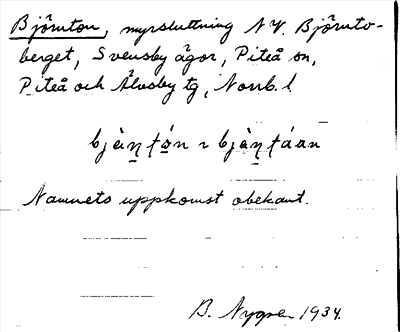 Björnton, myrsluttning N.V. Björnto-
berget, Svensby ägor, Piteå sn,
Piteå och Älvsby tg, Norrb. l
bjà̀ṇʈón ~ bjà̀ṇʈáan
Namnets uppkomst obekant.
B. Nygren 1934.